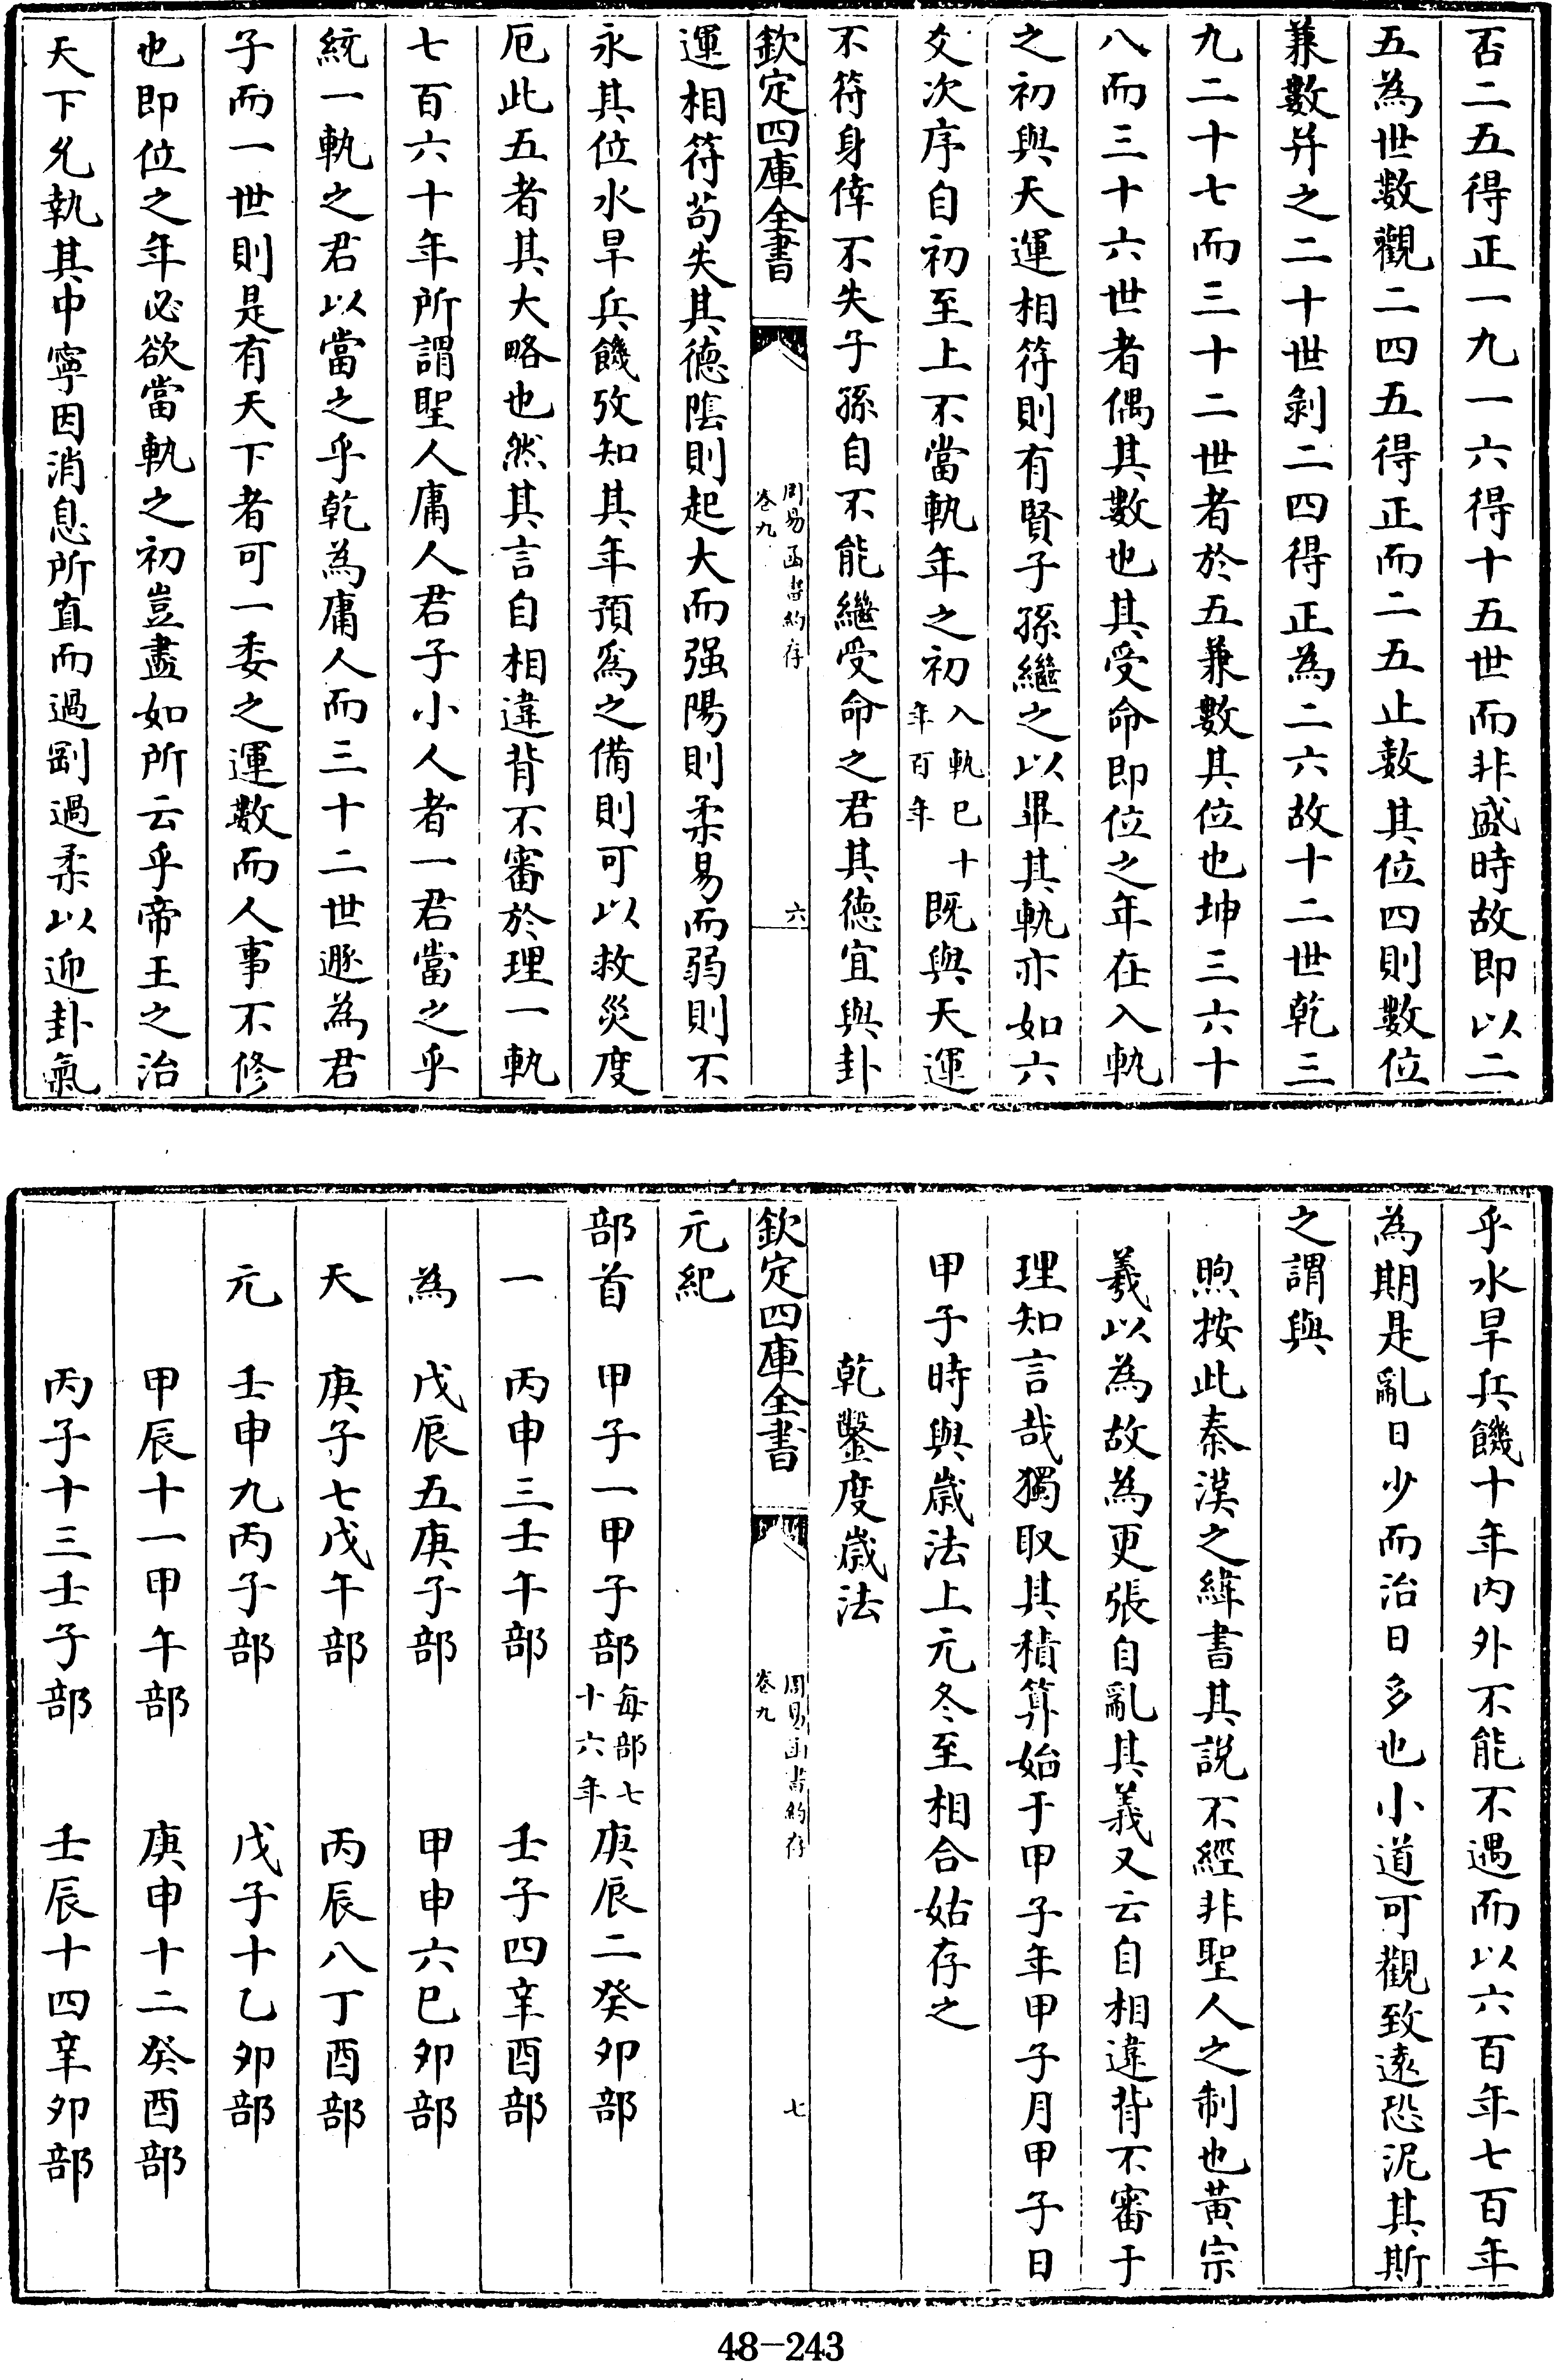 否二五得正一九一六得十五世而非盛時故即以二
五為世數觀二四五得正而二五止數其位四則數位
兼數并之二十世剝二四得正為二六故十二世乾三
九二十七而三十二世者於五兼數其位也坤三六十
八而三十六世者偶其數也其受命即位之年在入軌
之初與天運相符則有賢子孫繼之以畢其軌亦如六
爻次序自初至上不當軌年之初入軌已十年百年既與天運
不符身倖不失子孫自不能繼受命之君其德宜與卦
欽定四庫全書
周易函書約存
卷九
六
運相符苟失其德隂則起大而强陽則柔易而弱則不
永其位水旱兵饑攷知其年預為之備則可以救災度
厄此五者其大略也然其言自相違背不審於理一軌
七百六十年所謂聖人庸人君子小人者一君當之乎
統一軌之君以當之乎乾為庸人而三十二世遯為君
子而一世則是有天下者可一委之運數而人事不修
也即位之年必欲當軌之初豈盡如所云乎帝王之治
天下允執其中寧因消息所直而過剛過柔以迎卦氣
乎水旱兵饑十年内外不能不遇而以六百年七百年
為期是亂日少而治日多也小道可觀致遠恐泥其斯
之謂與
煦按此秦漢之緯書其說不經非聖人之制也黄宗
羲以為故為更張自亂其義又云自相違背不審于
理知言哉獨取其積算始于甲子年甲子月甲子日
甲子時與歲法上元冬至相合姑存之
乾鑿度歲法
欽定四庫全書
周易函書約存
卷九
七
元紀
部首 甲子一甲子部每部七十六年 庚辰二癸卯部
一 丙申三壬午部 壬子四辛酉部
為 戊辰五庚子部 甲申六巳卯部
天 庚子七戊午部 丙辰八丁酉部
元 壬申九丙子部 戊子十乙卯部
甲辰十一甲午部 庚申十二癸酉部
丙子十三壬子部 壬辰十四辛卯部
48-243